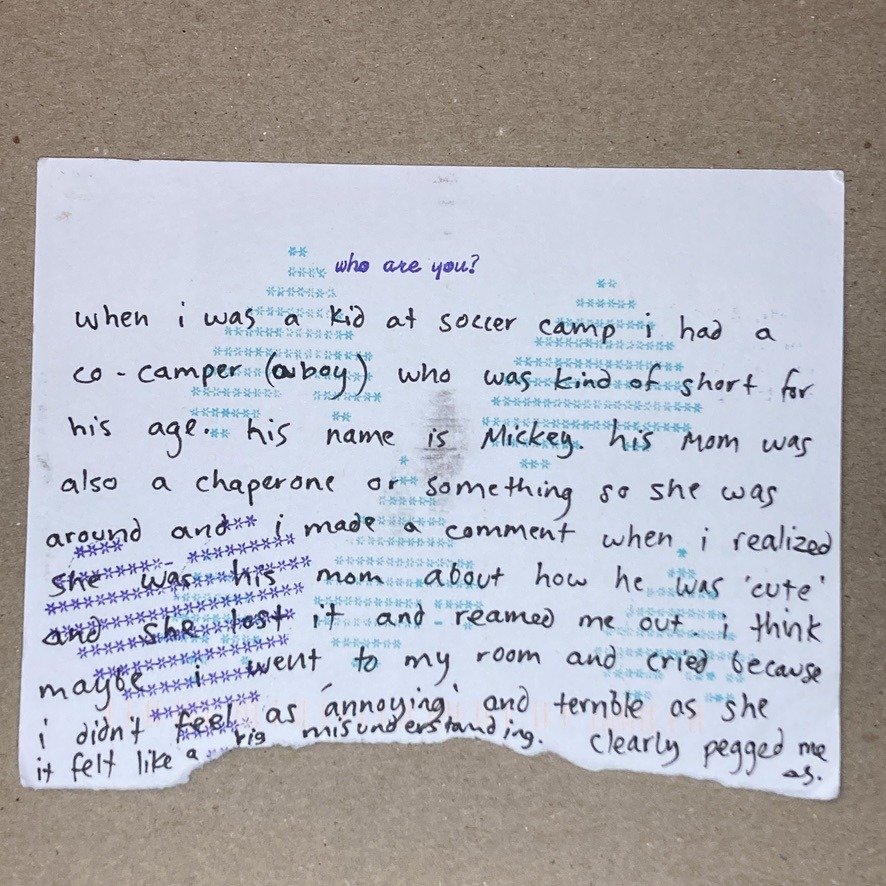 who are you?
when i was a kid at soccer camp i had a
co-camper (a boy) who was kind of short for
his age. his name is Mickey. his mom was
also a chaperone or something so she was
around and i made a comment when i realized
she was his mom about how he was 'cute'
and she lost it and reamed me out. i think
maybe i went to my room and cried because
i didn't feel as 'annoying' and terrible as she
clearly pegged me
as.
it felt like a big misunderstanding.